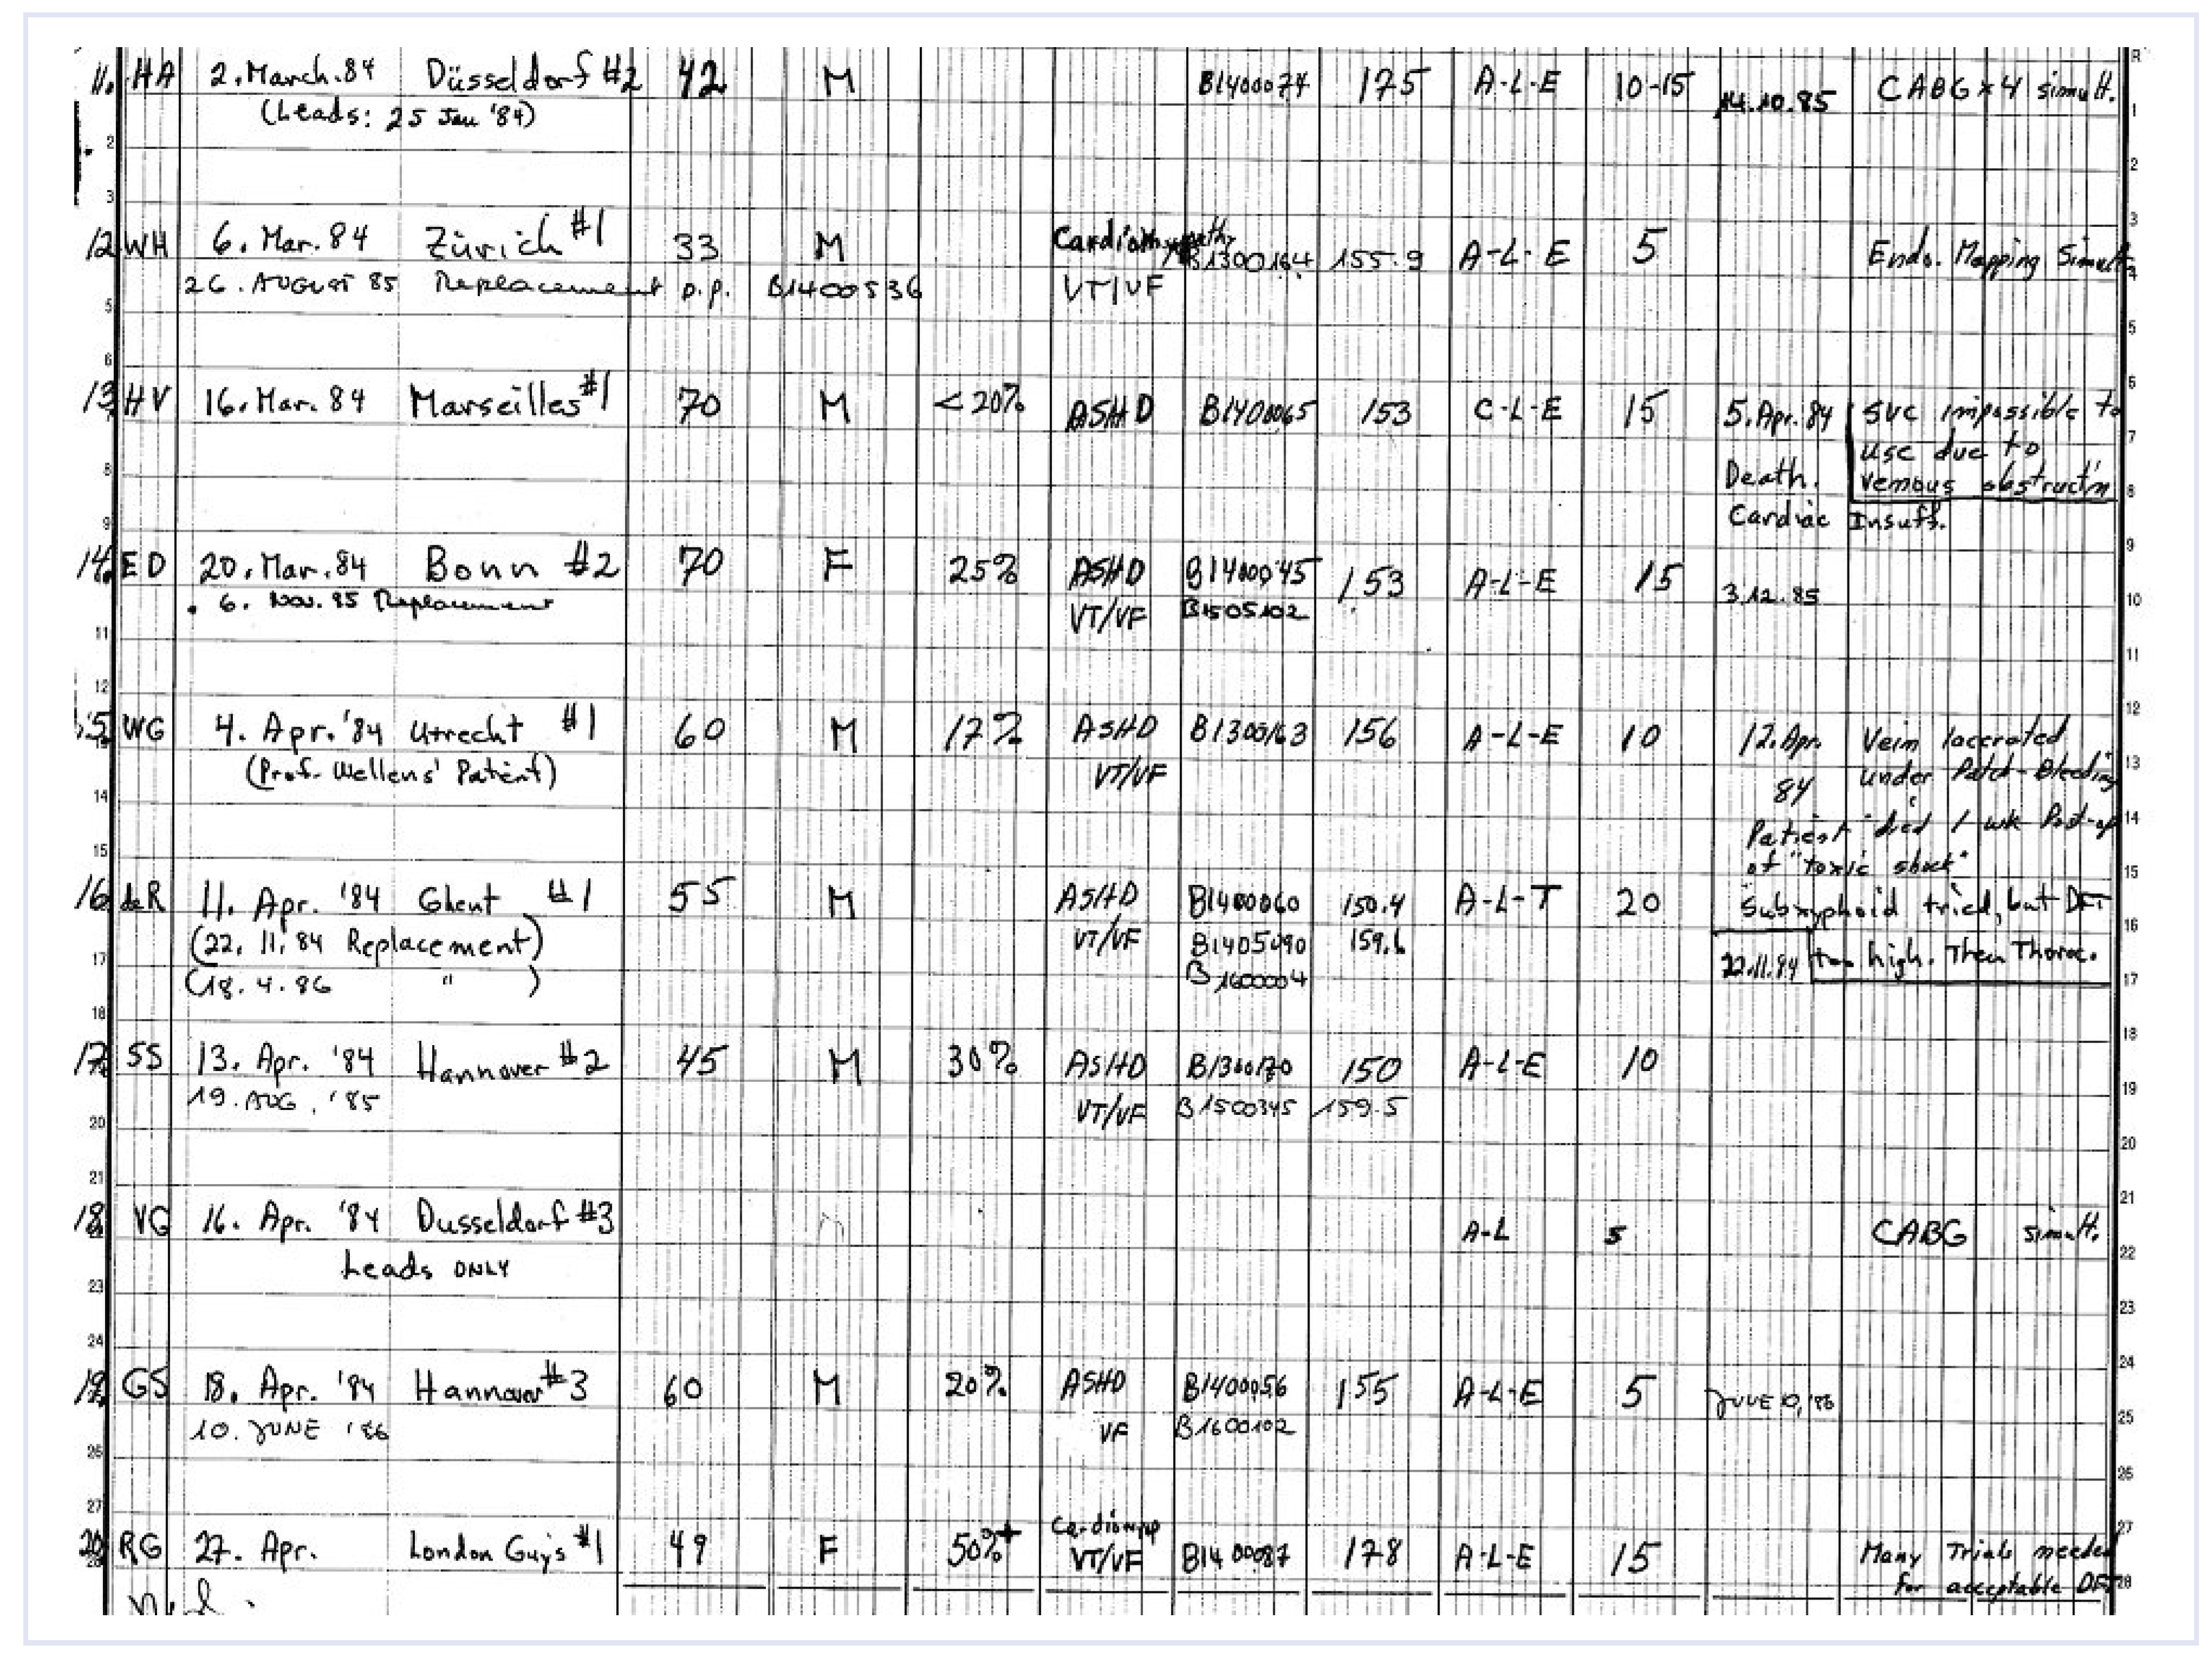 11. HA 2. March. 84 Düsseldorf #2 42 M B1400074 175 A-L-E 10-15 14.10.85 CABG x 4 simult.
(Leads: 25 Jan '84)
12 WH 6. Mar. 84 Zürich #1 33 M B1300164 155.9 A-L-E 5 Endo. Mapping
26. AUGUST 85 Replacement p.p. B1400536 VT/VF
13 HV 16. Mar. 84 Marseilles #1 70 M <20% ASHD B1400065 153 C-L-E 15 5. Apr. 84 SVC impossible to
use due to
Death. venous obstruct'n
Cardiac Insuff.
14. ED 20. Mar. 84 Bonn #2 70 F 25% ASHD B1400045 153 A-L-E 15 3.12.85
6. Nov. 85 Replacement VT/VF B1505102
15 WG 4. Apr. '84 Utrecht #1 60 M 17% ASHD B1300163 156 A-L-E 10 12. Apr. Vein lacerated
(Prof. Wellens' Patient) VT/VF 84 under Patch - Bleeding
Patient died 1 wk Post-op
of "toxic shock"
16 deR 11. Apr. '84 Ghent #1 55 M ASHD B1400060 150.4 A-L-T 20 Subxyphoid tried, but DFT
(22. 11. 84 Replacement) VT/VF B1405090 159.6 22.11.84 too high. Then Thorac.
(18. 4. 86 " ) B1600004
17 SS 13. Apr. '84 Hannover #2 45 M 30% ASHD 150 A-L-E 10
19. AUG. '85 VT/VF B1500345 159.5
18 VG 16. Apr. '84 Dusseldorf #3 A-L 5 CABG simult.
Leads ONLY
19 GS 18. Apr. '84 Hannover #3 60 M 20% ASHD B1400056 155 A-L-E 5 JUNE 10, '86
10. JUNE '86 VF B1600102
20 RG 27. Apr. London Guy's #1 49 F 50%+ VT/VF B1400087 178 A-L-E 15 Many Trials needed
for acceptable